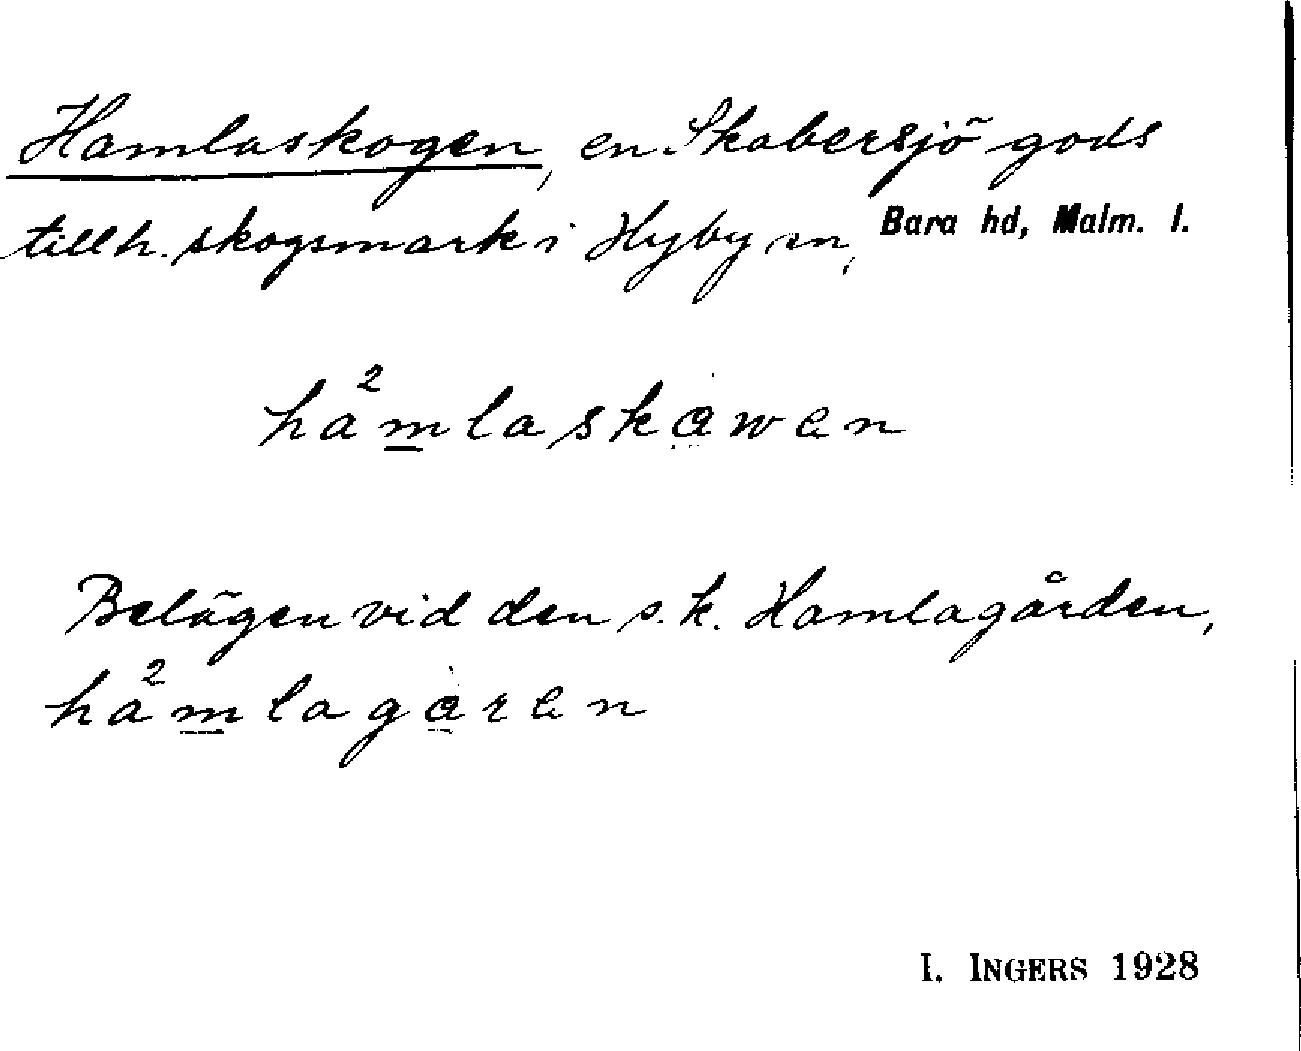 Hamlaskogen, en Skabersjö gods
tillh. skogsmark i Hyby sn, Bara hd, Malm. l.
hå²mlaskawen
Belägen vid den s.k. Hamlagården,
hå²mlagaren
I. INGERS 1928